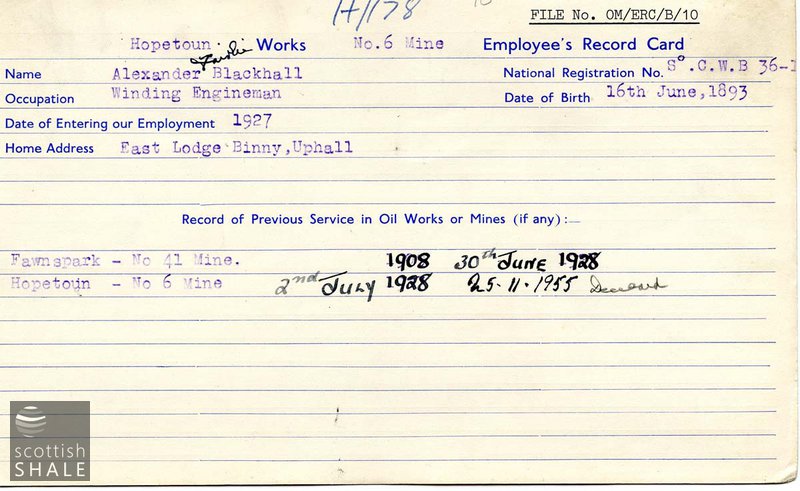 H/178
FILE No. OM/ERC/B/10
Hopetoun. Works No.6 Mine Employee's Record Card
Name Alexander Blackhall National Registration No. S°.C.W.B 36-1
Occupation Winding Engineman Date of Birth 16th June,1893
Date of Entering our Employment 1927
Home Address East Lodge Binny,Uphall
Record of Previous Service in Oil Works or Mines (if any) :—
Fawnspark - No 41 Mine. 1908 30th JUNE 1928
Hopetoun - No 6 Mine 2nd JULY 1928 25.11.1955 Deceased
scottish
SHALE